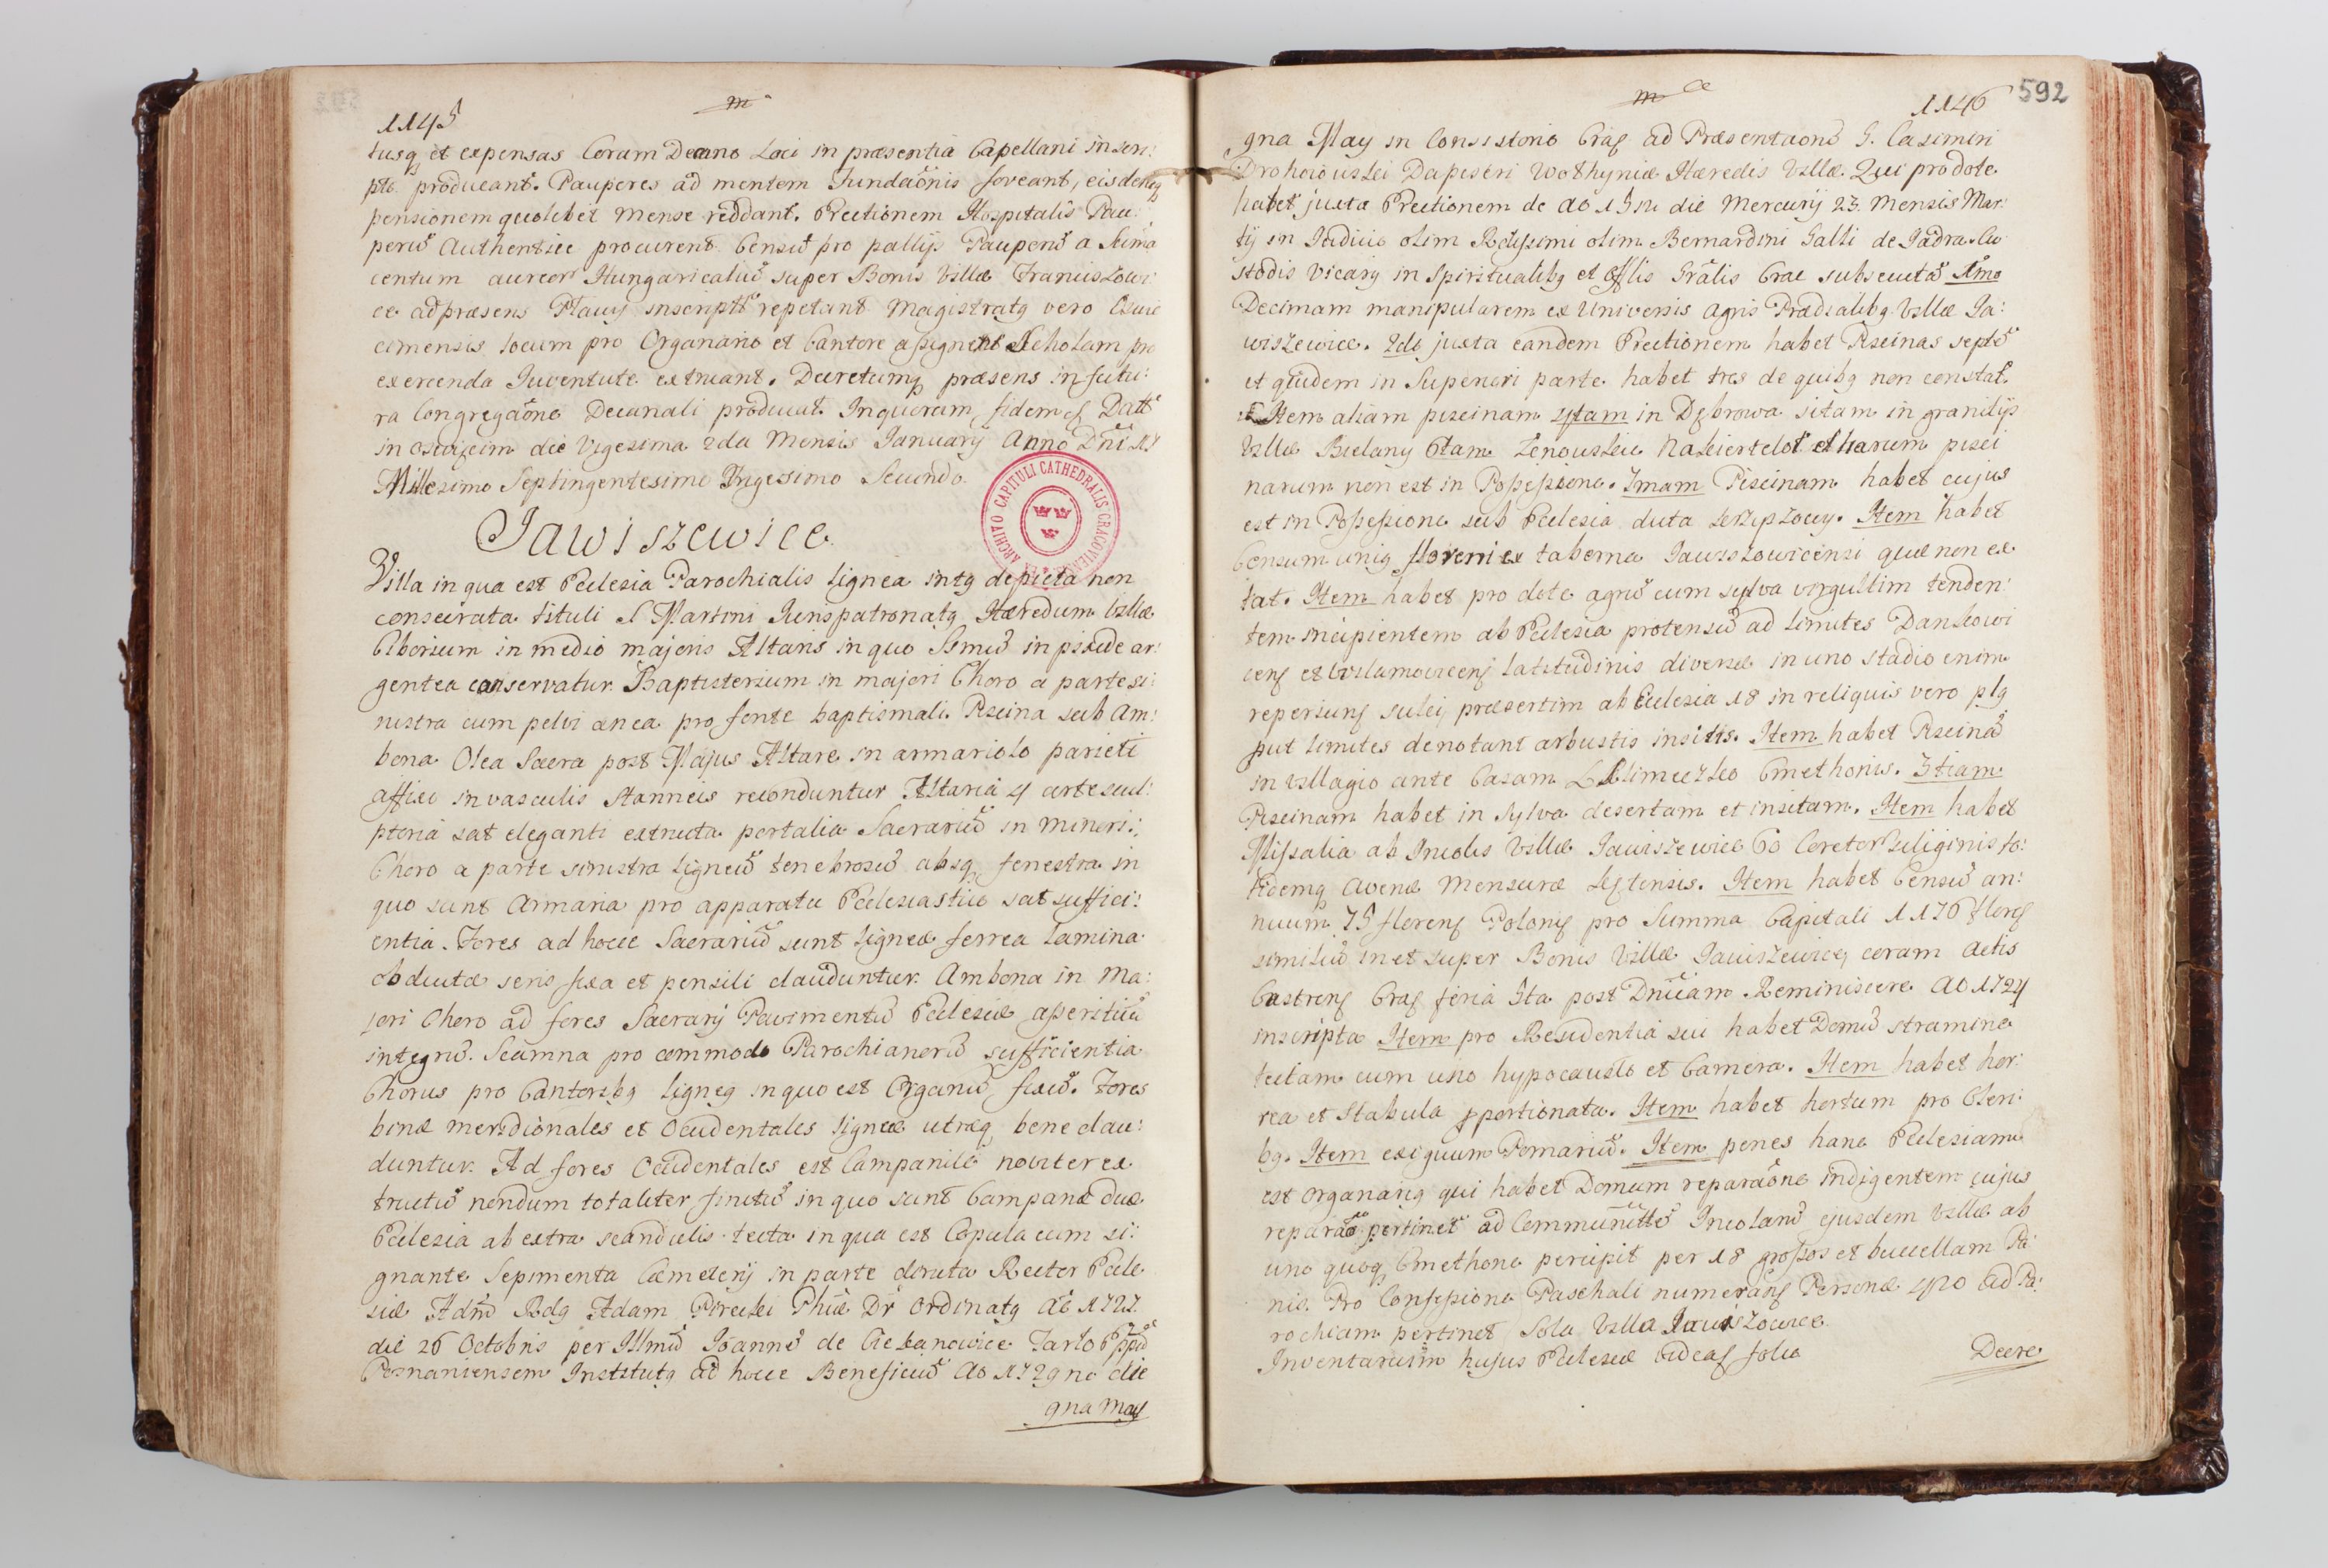 1145
m
tusq et expensas Coram Decano Loci in præsentia Capellani in scri:
pto producant. Pauperes ad mentem Fundaõnis foveant, eisdemq
pensionem quolibet mense reddant. Erectionem Hospitalis Pau:
perũ Authentice procurent Censũ pro pallijs Pauperũ a Suma
centum aureor Hungaricaliũ super Bonis Villæ Franciszowi:
ce ad præsens Plawy inscriptã repetant Magistratq vero Oswie
cimensis locum pro Organario et Cantore assignent Scholam pro
exercenda Juventute extruant. Decretumq præsens in futu:
ra Congregaõne Decanali producat. In quorum fidem Datt
in Oswięcim die Vigesima 2da Mensis Januarij Anno Dñi
Millesimo Septingentesimo Trigesimo Secundo.
ARCHIVO CAPITULI CATHEDRALIS CRACOVIENSIS
Jawiszewice
Villa in qua est Ecclesia Parochialis lignea intq depicta non
consecrata tituli S Martini Jurispatronatq Hæredum Villæ
Ciborium in medio majoris Altaris in quo Ssmũ in pixide ar:
gentea conservatur. Baptisterium in majori Choro a parte si:
nistra cum pelvi ænea pro fonte baptismali. Piscina sub am:
bona Olea Sacra post Majus Altare in armariolo parieti
affixo in vasculis stanneis reconduntur Altaria 4 arte scul:
ptoria sat eleganti extructa portalia Sacrariũ in minori:
Choro a parte sinistra ligneũ tenebrosũ absq fenestra in
quo sunt Armaria pro apparatu Ecclesiastico sat suffici:
entia. Fores ad hocce Sacrariũ sunt ligneæ ferrea lamina
obductæ sera fixa et pensili clauduntur. Ambona in Ma:
jori Choro ad fores Sacrarij Pavimentũ Ecclesiæ asseritiũ
integrũ. Scamna pro commodo Parochianorũ sufficientia
Chorus pro Cantoribq ligneq in quo est Organũ fixũ. Fores
binæ meridionales et Occidentales ligneæ utræq bene clau:
duntur. Ad fores Occidentales est Campanile noviter ex
tructũ nondum totaliter finitũ in quo sunt Campanæ duæ
Ecclesia ab extra scandulis tecta in qua est Copula cum si:
gnante Sepimenta Cæmeterij in parte diruta Rector Eccle
siæ Adm Rdq Adam Phiæ Dr Ordinatq Aõ 1727
die 26 Octobris per Illmũ Joannẽ de Czekanowice Tarlo Eppũ
Posnaniensem Institutq ad hocce Beneficiũ Ao 1729no die
9na May
m
1146
592
9na May in Consistorio Crac ad Præsentaonẽ G. Casimiri
Drohoiowski Dapiferi Wołhyniæ Hæredis Villæ. Qui pro dote
habet juxta Erectionem de Ao die Mercurij 23 Mensis Mar:
tij in Judicio olim Rdissimi olim Bernardini Galli de Jadra Cu
stodis Vicarij in Spiritualibq et Offlis Grãlis Crac subsecutã 1mo
Decimam manipularem ex Universis Agris Prædialibq Villæ Ja:
wiszewice. 2do juxta eandem Erectionem habet Piscinas septẽ
et quidem in Superiori parte habet tres de quibq non constat.
Item aliam piscinam 4tam in Dębrowa sitam in granicijs
Villæ Bielany 6tam et harum pisci
narum non est in Possessione. 7mam Piscinam habet cujus
est in Possessione sub Ecclesia dicta. Item habet
Censum uniq floreni ex taberna Jawiszowicensi quæ non ex
tat. Item habet pro dote agrũ cum sylva virgultim tenden:
tem incipientem ab Ecclesia protensũ ad limites Dankowi
cens et latitudinis diversæ in uno stadio enim
reperiuns sulci præsertim ab Ecclesia 18 in reliquis vero plq
put limites denotant arbustis insitis. Item habet Piscinã
in villagio ante Casam Klimeczko Cmethonis. 3tiam
Piscinam habet in sylva desertam et insitam. Item habet
Missalia ab Incolis Villæ Jawiszewice 60 Coretor Siliginis to:
tidemq Avenæ Mensuræ. Item habet Censũ an:
nuum 75 florens Polons pro Summa Capitali 1176 flors
similiũ in et super Bonis Villæ Jawiszewice coram Actis
Castrens Crac feria 5ta post Dnicam Reminiscere Ao 1724
inscripta Item pro Residentia sui habet Domũ stramine
tectam cum uno hypocausto et Camera. Item habet hor:
rea et Stabula pportionata. Item habet hortum pro Oleri:
bq. Item exiguum Pomariũ. Item penes hanc Ecclesiam
est Organariq qui habet Domum reparaõne indigentem cujus
reparaõ pertinet ad Communittẽ Incolarũ ejusdem Villæ ab
uno quoq Cmethone percipit per 18 grossos et buccellam Pa:
nis. Pro Confessione Paschali numerans Personæ 420 ad Pa:
rochiam pertinet Sola Villa Jawiszowice
Inventarium hujus Ecclesiæ videas folio
Decre